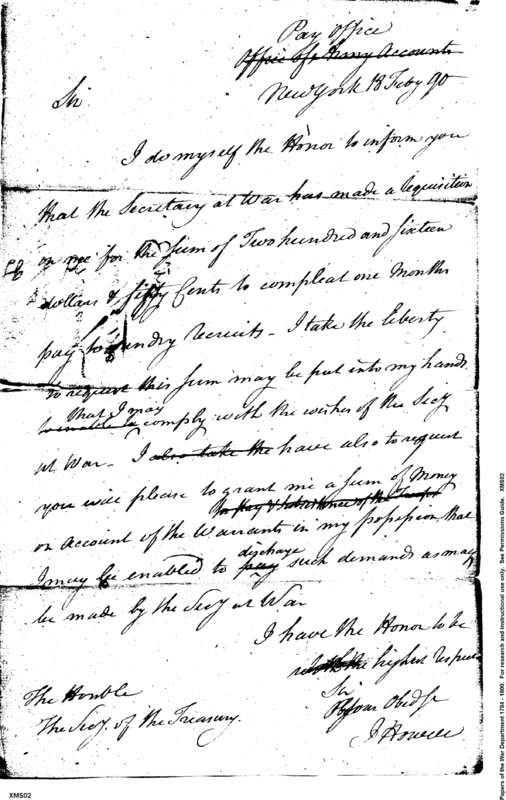 Pay Office
Office of Army Accounts
New York 18 Feby 90
Sir
I do myself the Honor to inform you
that the Secretary at War has made a requisition
on me for the sum of Two hundred and sixteen
dollars & fifty Cents to compleat one Months
pay to sundry recruits - I take the liberty
to request this sum may be put into my hands
that I may
comply with the wishes of the Secy
at War. I also take the have also to request
you will please to grant me a sum of Money
for Pay & Subsistence of the Troops
on account of the Warrants in my possession that
discharge
I may be enabled to pay such demands as may
be made by the Secy at War
I have the Honor to be
the highest respect
Sir
Your Obed Sr
J Howell
The Honble
The Secy. of the Treasury.
XMS02
Papers of the War Department 1784 - 1800. For research and instructional use only. See Permissions Guide. XMS02